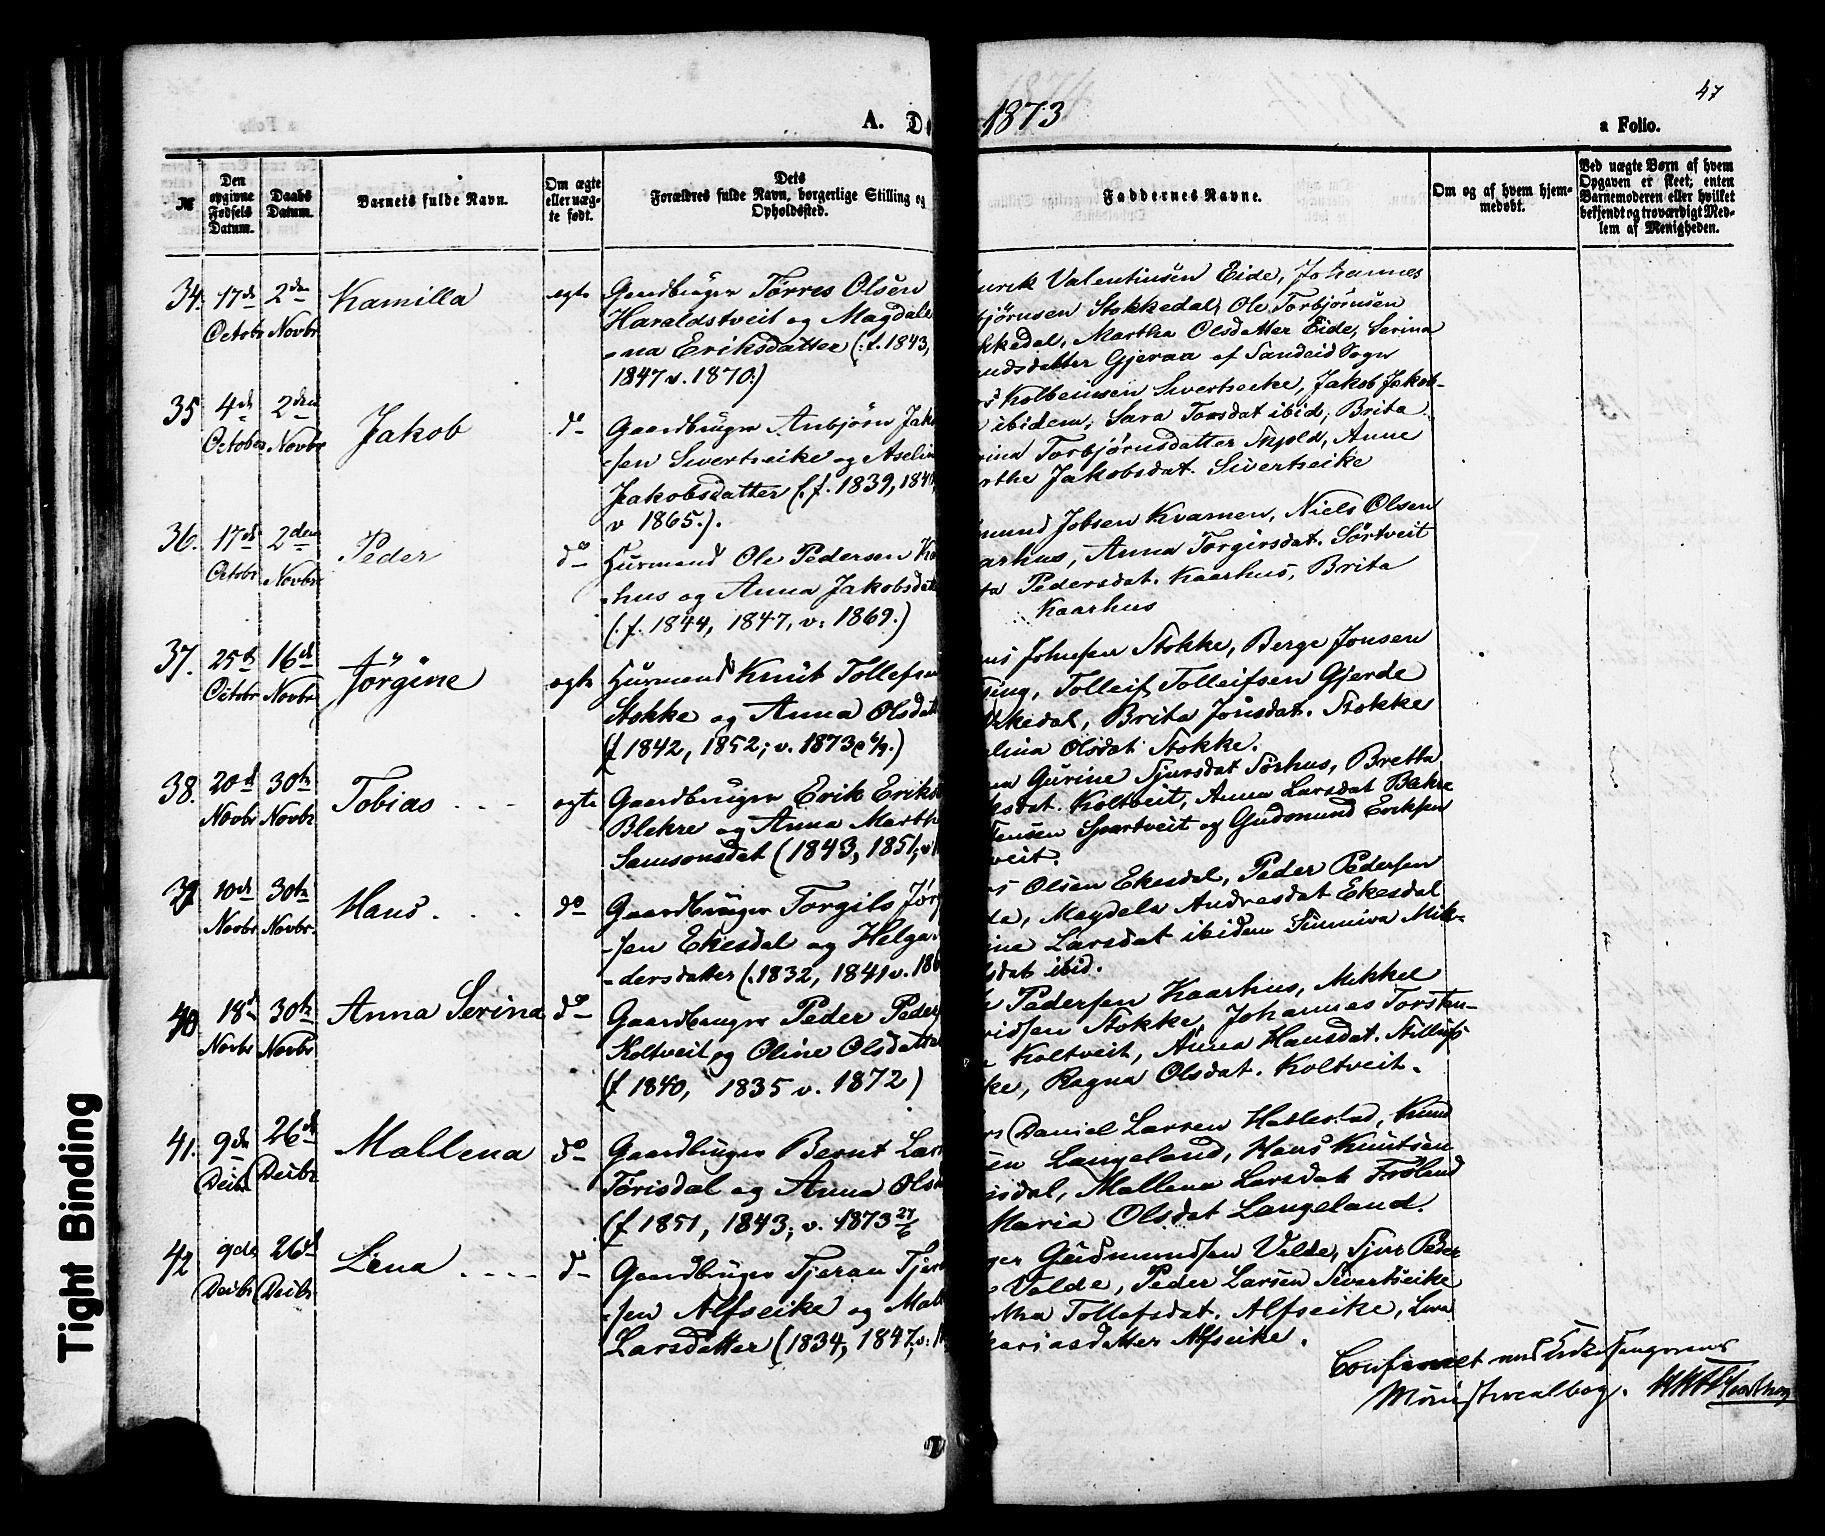 47
A. D
1873
a Folio.
№
Den opgivne Fødsels Datum.
Daabs Datum.
Barnets fulde Navn.
Om ægte eller uægte født.
Dets Forældres fulde Navn, borgerlige Stilling og Opholdssted.
Faddernes Navne.
Om og af hvem hjemmedøbt.
Ved uægte Børn af hvem Opgaven er skeet; enten Barnemoderen eller hvilket bekjendt og troværdigt Medlem af Menigheden.
34. 17de Octobr 2den Novbr Kamilla ægte
Gaardbruger Törres Olsen
Haraldstveit og Magdale
-na Eriksdatter (: f. 1843,
1847 v. 1870:)
Valentinsen Eide, Johannes
jörnsen Stokkedal, Ole Torbjörnsen
kkedal, Martha Olsdatter Eide, Serina
datter Gjeraa af Sandeid Sogn
35 4de October 2den Novbr Jakob do
Gaardbruger Anbjörn Jak
-sen Sivertseike og Aselin
Jakobsdatter (: f. 1839, 184
v 1865.).
Kolbeinsen Sivertseike, Jakob Jakob-
ibidem, Sara Torsdat ibid; Brita
rina Torbjörnsdatter Skjold, Anne
rthe Jakobsdat. Sivertseike
36. 17de Octobr 2den Novbr Peder do
Huusmand Ole Pedersen Ka
-hus og Anna Jakobsdatt
(: f. 1844, 1847, v: 1869.)
mund Jobsen Kvamen, Niels Olsen
arhus, Anna Torgirsdat. Sörtveit
ta Pedersdat. Kaarhus, Brita
Kaarhus
37. 25de Octobr 16de Novbr Jörgine ægte
Huusmand Knut Tollefsen
Stokke og Anna Olsdatt
(f 1842, 1852; v. 1873
Johnsen Stokke, Berge Jonsen
sing, Tolleif Tolleifsen Gjerde
kkedal, Brita Jonsdat. Stokke
lina Olsdat Stokke.
38. 20de Novbr 30te Novbr Tobias ægte
Gaardbruger Erik Eriks
Blekre og Anna Marth
Samsonsdat (1843, 1851, v
na Gurine Sjursdat Sörhus, Bretta
sdat. Koltveit, Anna Larsdat Bekre
Jensen Spartveit og Gudmund Eriksen
veit.
39 10de Novbr 30te Novbr. Hans. do
Gaardbruger Torgils Jör
-sen Ekesdal og Helga
-dersdatter (: 1832, 1841 v. 186
Olsen Ekesdal, Peder Pedersen
de, Magdela Andreasdat Ekesdal
ine Larsdat ibidem Sunniva Mik-
lsdat ibid.
40 18de Novbr 30te Novbr Anna Serina do
Gaardbruger Peder Peder
Koltveit og Oline Olsdatte
(f 1840, 1835 v. 1872)
Pedersen Kaarhus, Mikkel
ridsen Stokke, Johannes Torsten-
Koltveit, Anna Hansdat. Stillufs
ke, Ragna Olsdat. Koltveit.
41. 9de Decbr 26de Decbr Mallena do
Gaardbruger Bernt Lar
Törisdal og Anna Ols
(f 1851, 1843; v. 1873 27/6
Daniel Larsen Hatlestad, Knud
sen Langeland, Hans Knutsen
isdal, Mallena Larsdat Fröland
Maria Olsdat Langeland.
42 9de Decbr 26de Decbr Lena do
Gaardbruger Tjeran Tje
-sen Alfseike og Mal
Larsdatter (1834, 1847; v.
ger Gudmundsen Velde, Sjur Peder
Velde, Peder Larsen Sivertseike
tha Tollefsdat. Alfseike, Lena
kariasdatter Alfseike.
Conferert med Kirkesangerens
Ministerialbog.
Tight Binding